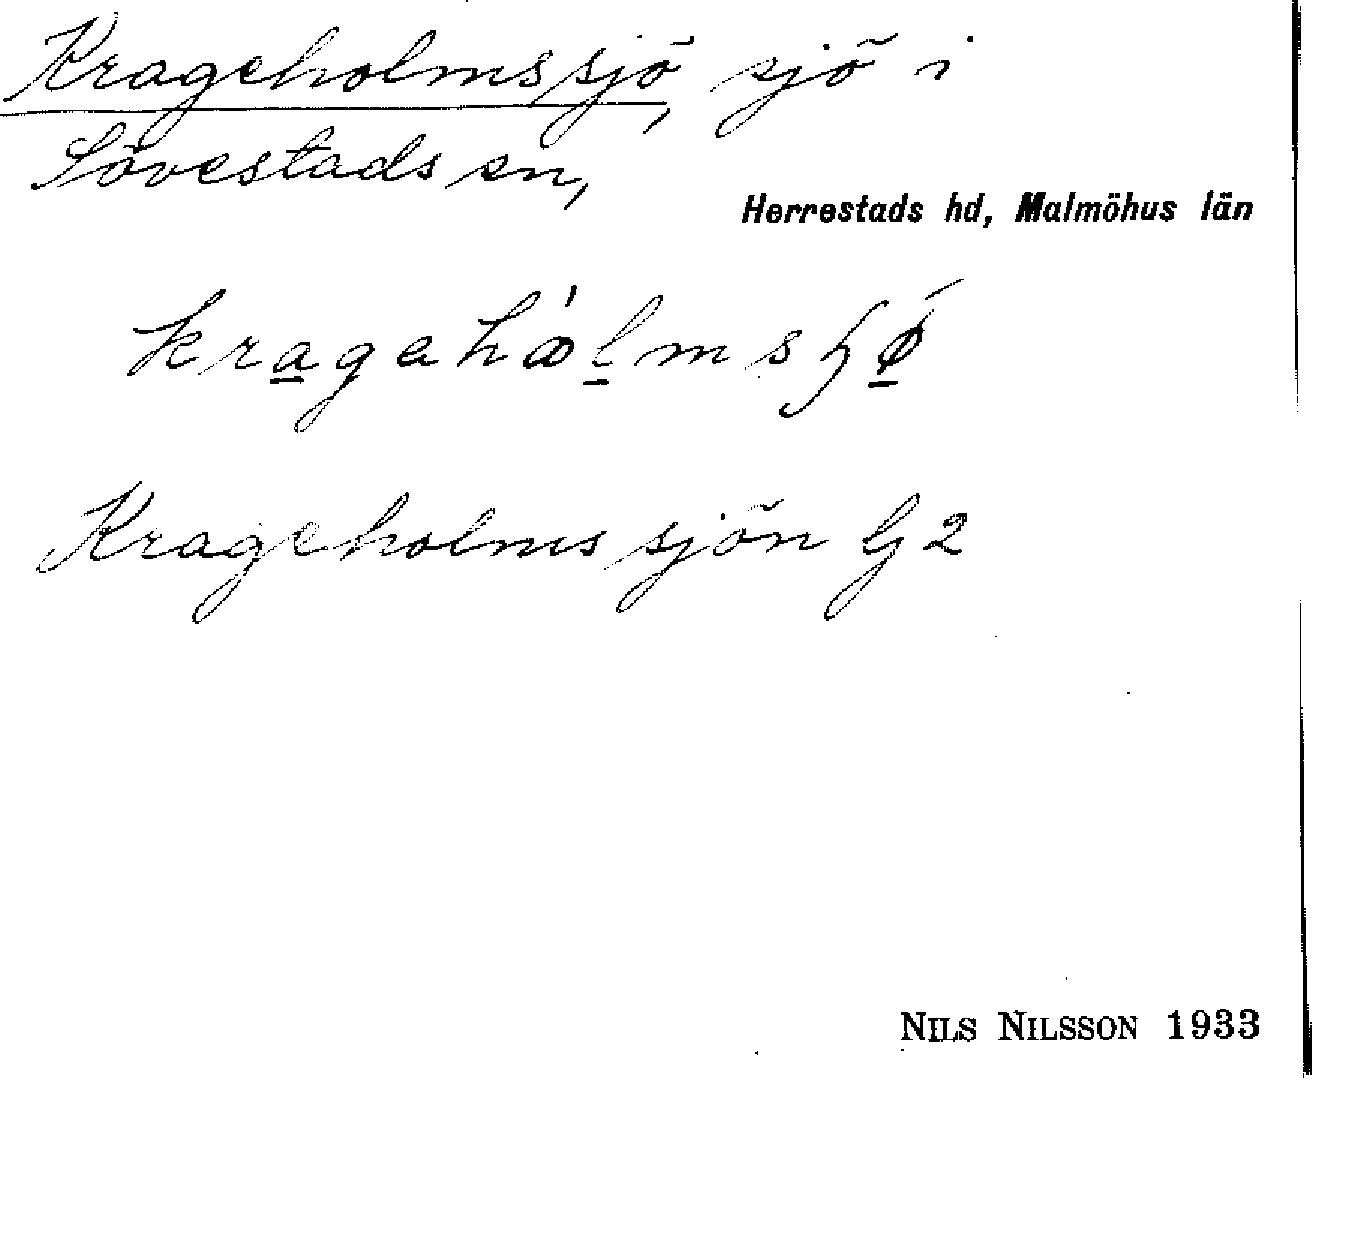 Krageholmssjö, sjö i
Sövestads sn,
Herrestads hd, Malmöhus län
Krageholmssjön G2
NILS NILSSON 1933